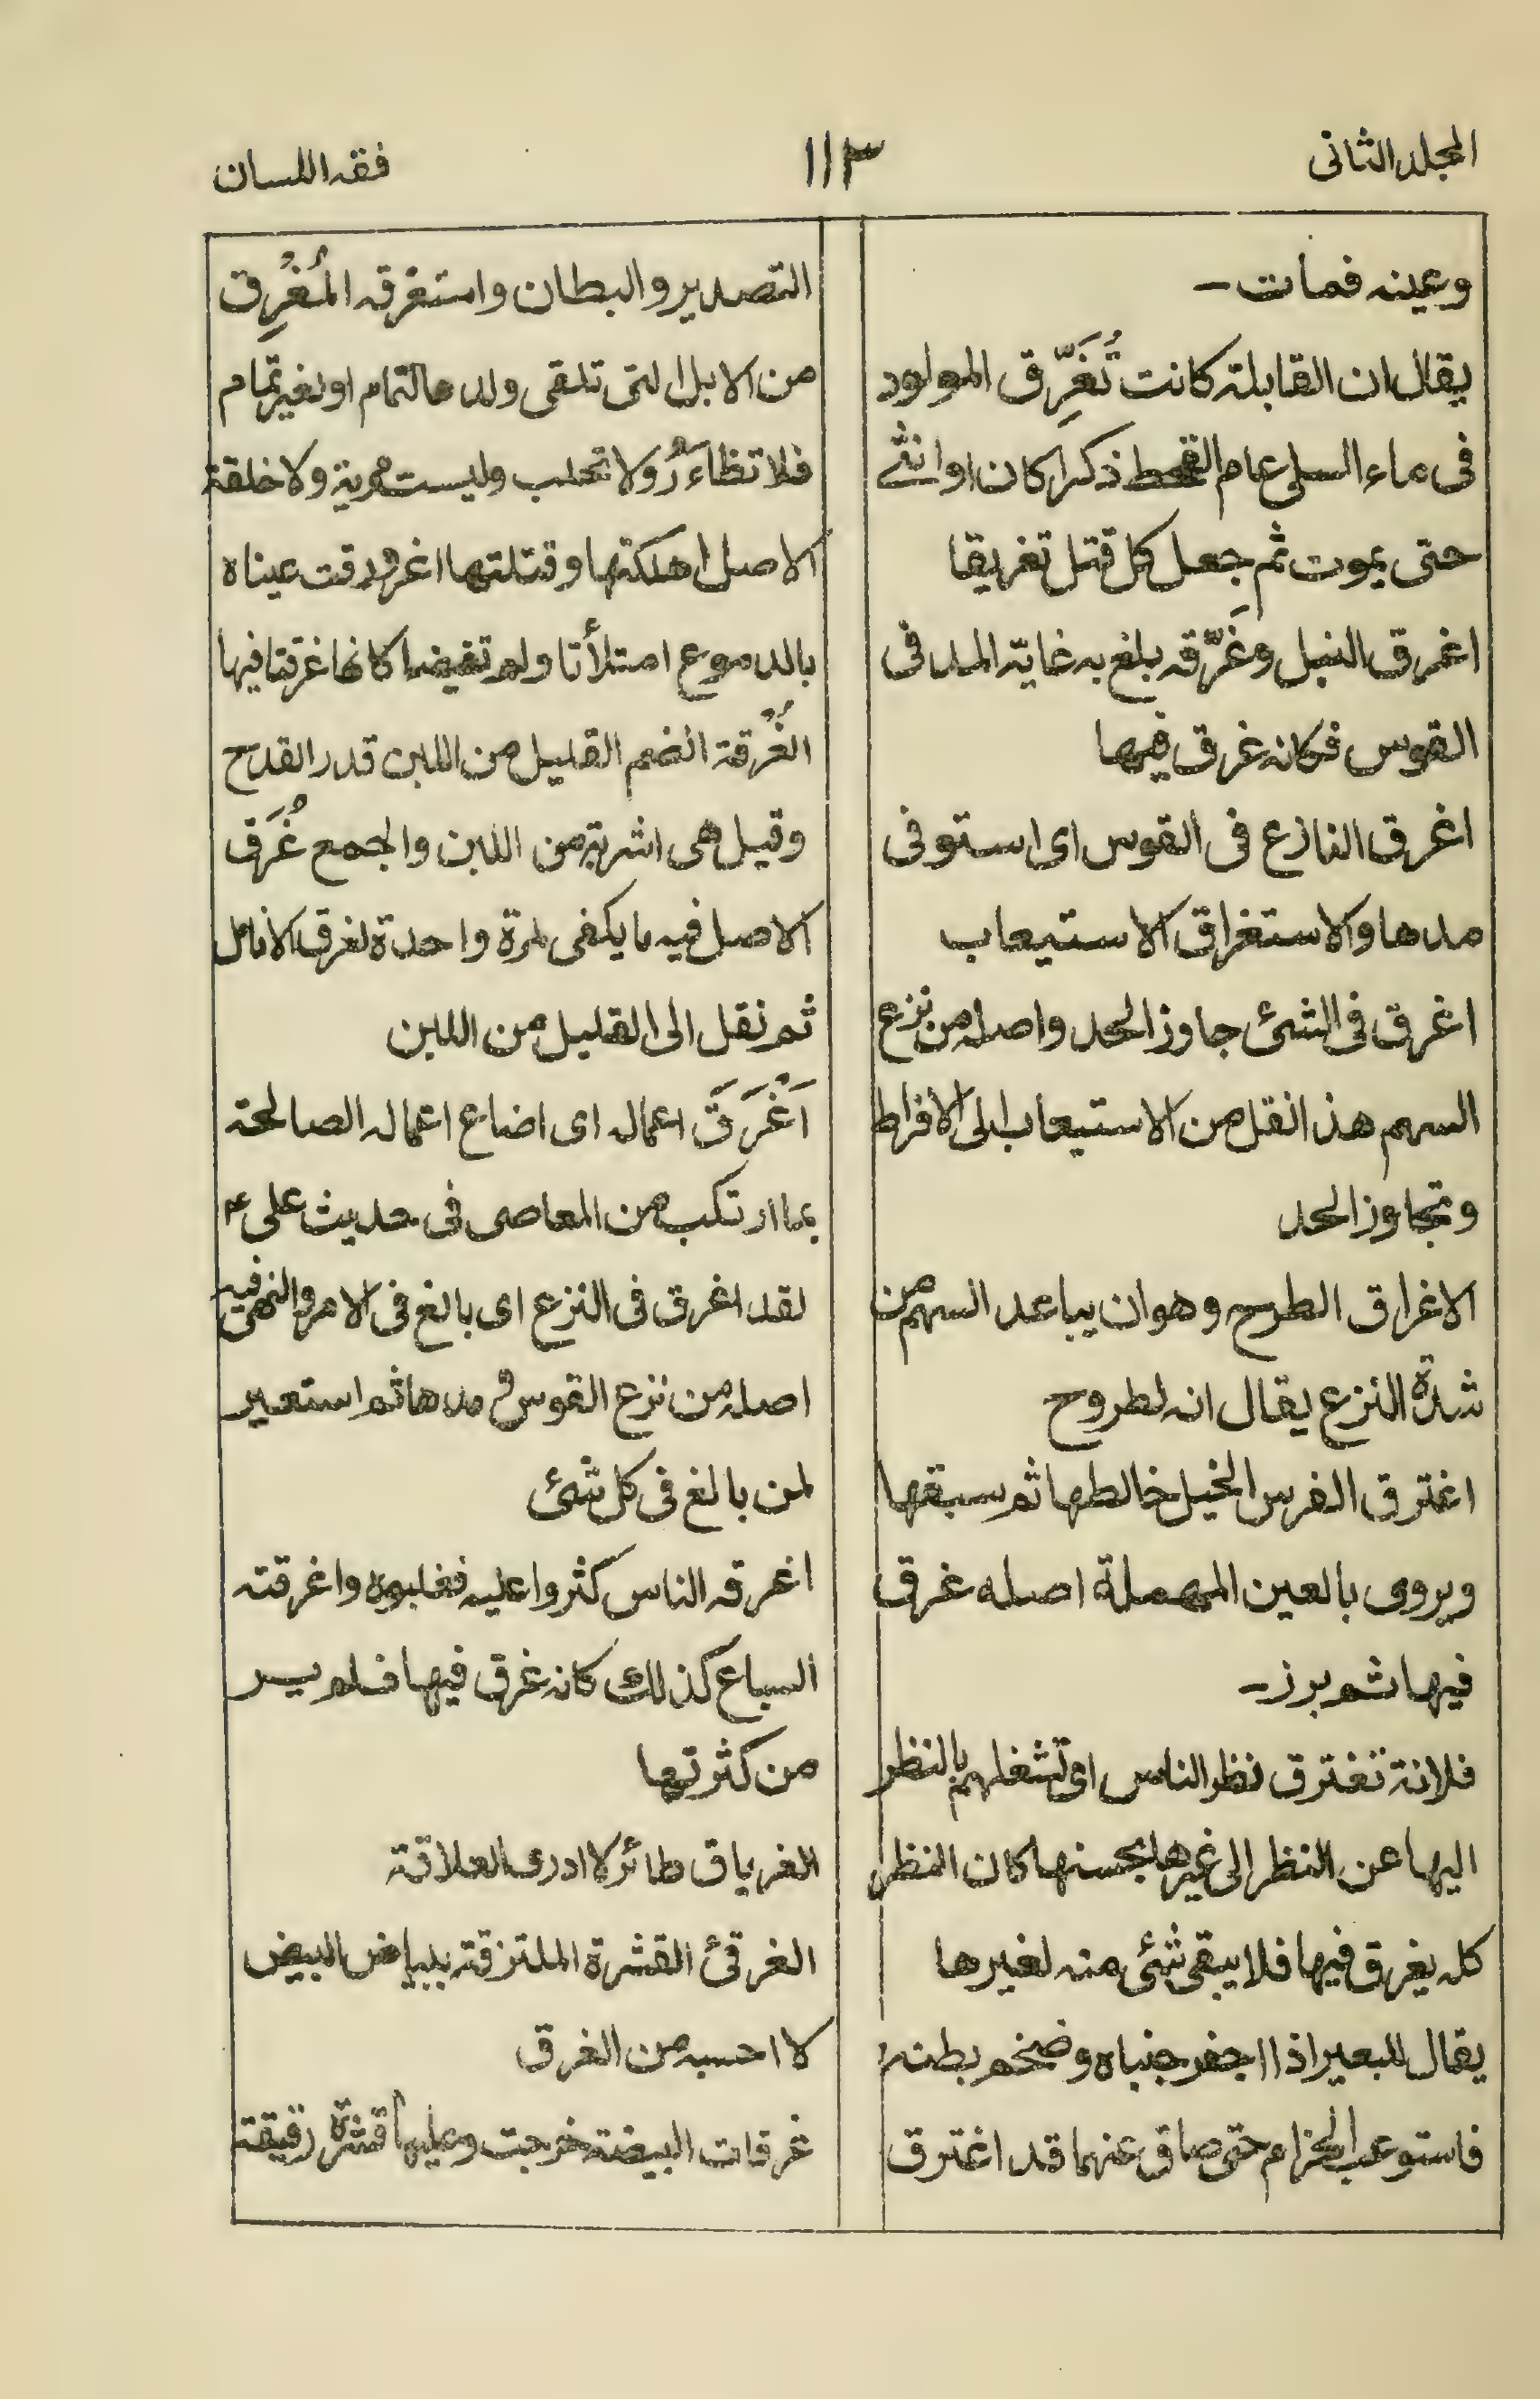 المجلد الثانی
١١٣
فقه اللسان
وعینه فمات -
یقال ان القابلة کانت تُغَرِّق المولود
فی ماء السلی عام القحط ذکرا کان او انثی
حتی یموت ثم جعل کل قتل تغریقا
اغرق النبل وغَرَّقه بلغ به غایة المد فی
القوس فکانه غرق فیها
اغرق النازع فی القوس ای استوفی
مدها والاستغراق الاستیعاب
اغرق فی الشئ جاوز الحد واصله من نزع
السهم هذا نقل من الاستیعاب الی الافراط
وتجاوز الحد
الاغراق الطرح وهو ان یباعد السهم من
شدة النزع یقال انه لطروح
اغترق الفرس الخیل خالطها ثم سبقها
ویروی بالعین المهملة اصله غرق
فیها ثم برز -
فلانة تغترق نظر الناس ای تشغلهم بالنظر
الیها عن النظر الی غیرها بحسنها کان النظر
کله یغرق فیها فلا یبقی شئی منه لغیرها
یقال للبعیر اذا اجفر جنباه وضخم بطنه
فاستوعب الحزام حتی ضاق عنهما قد اغترق
التصدیر والبطان واستغرقه المُغْرِق
من الابل التی تلقی ولدها لتمام او لغیر تمام
فلا تظاءَرُ ولا تحلب ولیست مریة ولا خلقة
الاصل اهلکتها وقتلتها اغرورقت عیناه
بالدموع امتلأتا ولم تفیضا کانها غرقتا فیها
الغُرْقة الضم القلیل من اللبن قدر القدح
وقیل هی اشربة من اللبن والجمع غُرَق
الاصل فیه ما یکفی لمرة واحدة لغرق الانامل
ثم نقل الی القلیل من اللبن
اَغْرَقَ اعماله ای اضاع اعماله الصالحة
بما ارتکب من المعاصی فی حدیث علی ؑ
لقد اغرق فی النزع ای بالغ فی الامر وانتهی فیه
اصله من نزع القوس و مدها ثم استعیر
لمن بالغ فی کل شئ
اغرقه الناس کثروا علیه فغلبوه واغرقته
السباع کذلک کانه غرق فیها فلم یر
من کثرتها
الغریاق طائر لا ادری العلاقة
الغرقئ القشرة الملتزقة ببیاض البیض
لا احسبه من الغرق
غرقات البیضة خرجت وعلیها قشرة رقیقة